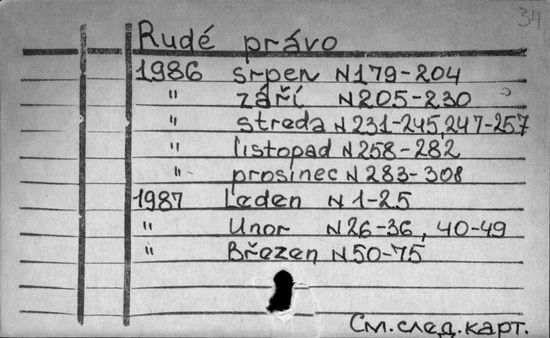 34
Rudé právo
1986 srpen N179-204
" září N205-230
" streda N231-245,247-257
" listopad N258-282
" prosinec N283-308
1987 Leden N1-25
" Unor N26-36, 40-49
" Březen N50-75
См.след.карт.